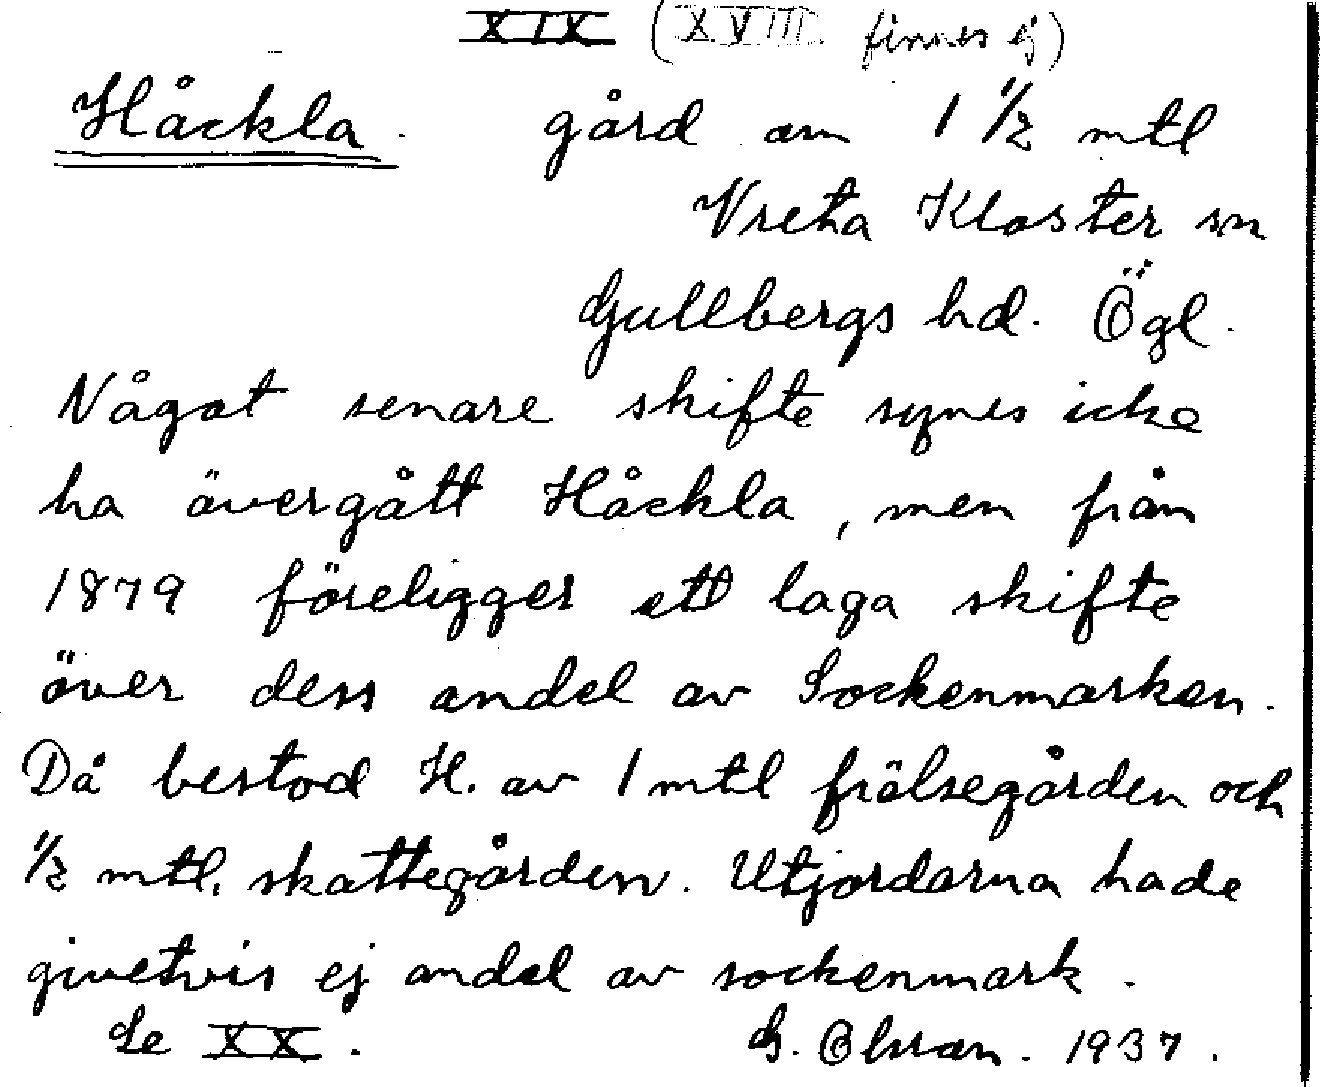 XIX (XVIII finnes ej)
Håckla. gård om 1 1/2 mtl
Vreta Kloster sn
Gullbergs hd. Ögl.
Något senare skifte synes icke
ha övergått Håckla, men från
1879 föreligger ett laga skifte
över dess andel av Sockenmarken.
Då bestod H. av 1 mtl frälsegården och
1/2 mtl. skattegården. Utjordarna hade
givetvis ej andel av sockenmark.
Se XX. G. Olsson. 1937.